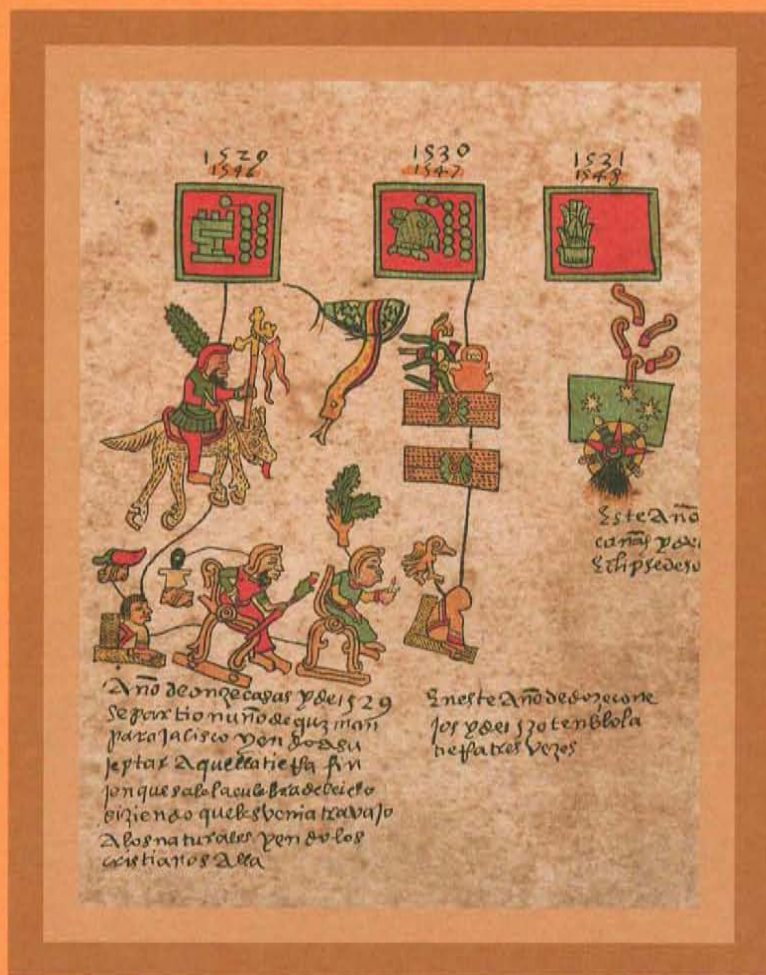 1529
1546
1530
1547
1531
1548
Este Año
cañas y de
Eclipse de so
Año de onze casas y de 1529
se partio nuño de guzman
para Jalisco yendo a su
jeptar Aquella tierra fin
jen que salo la culebra del cielo
diziendo que les venia travajo
A los naturales yendo los
cristianos Alla
En este Año de doze cone
jos y de 1530 tenblo la
tierra tres vezes